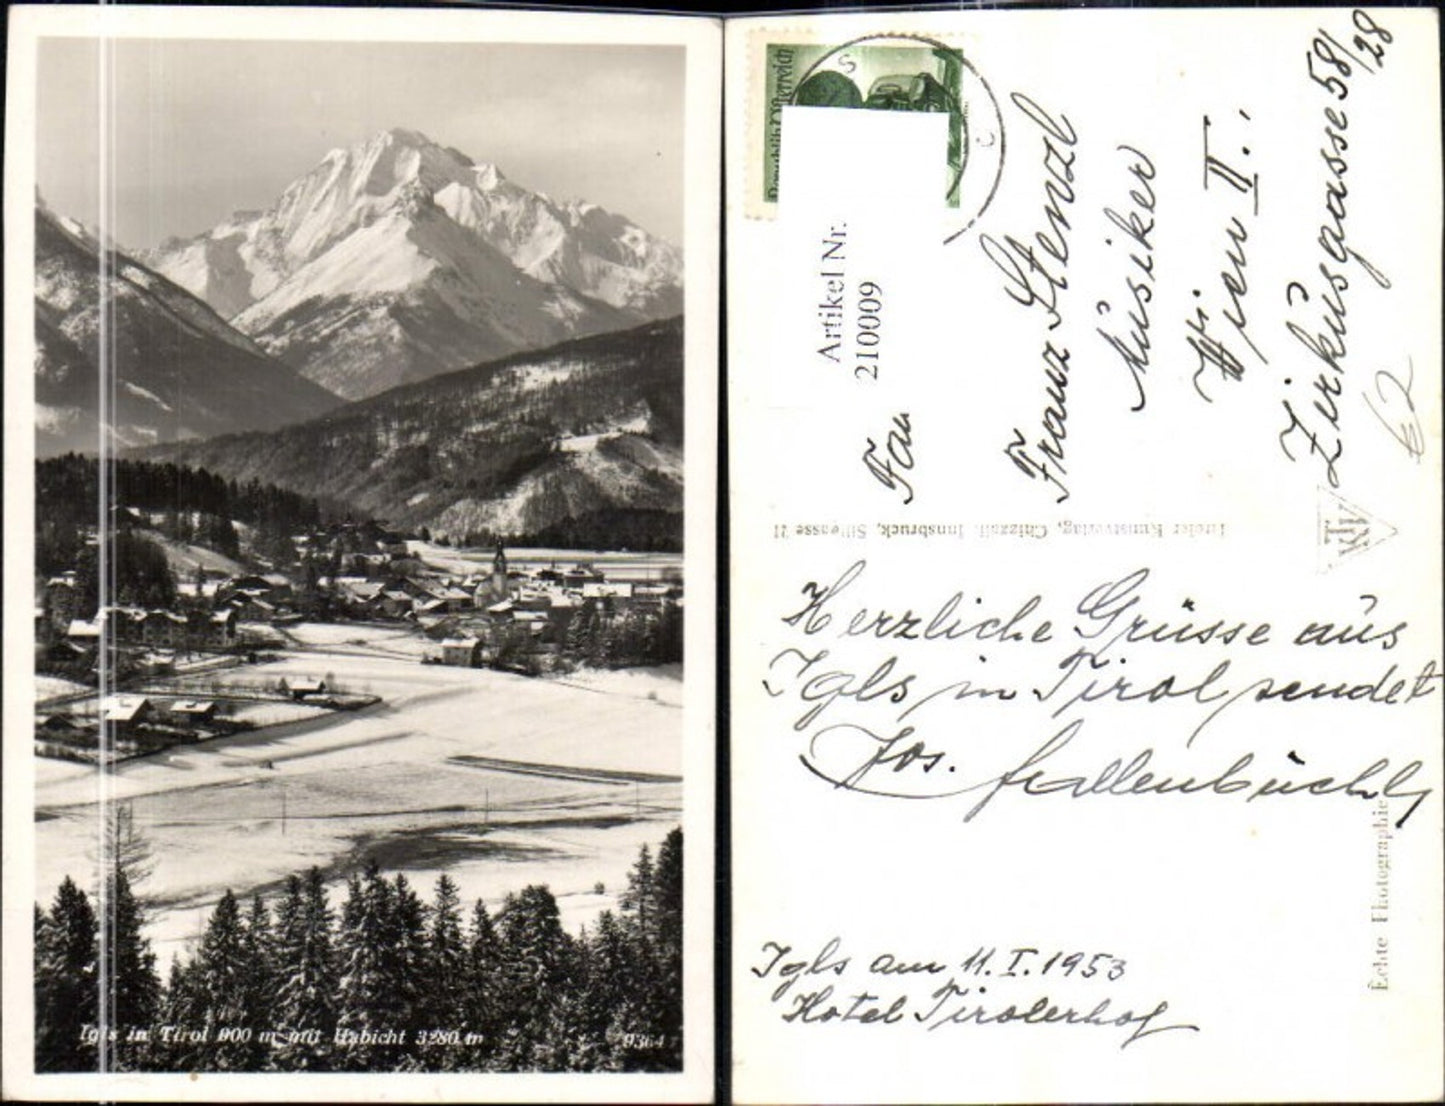 Igls in Tirol 900 m mit Habicht 3280 m
9364
Republik Österreich
Artikel Nr.
210009
Fam
Franz Stenzl
Musiker
Wien II.,
Zirkusgasse 58/28
62
Tiroler Kunstverlag, Chizzali, Innsbruck, Sillgasse 21
KTV
Herzliche Grüsse aus
Igls in Tirol sendet
Jos.
Echte Photographie
Igls am 11.I.1953
Hotel Tirolerhof